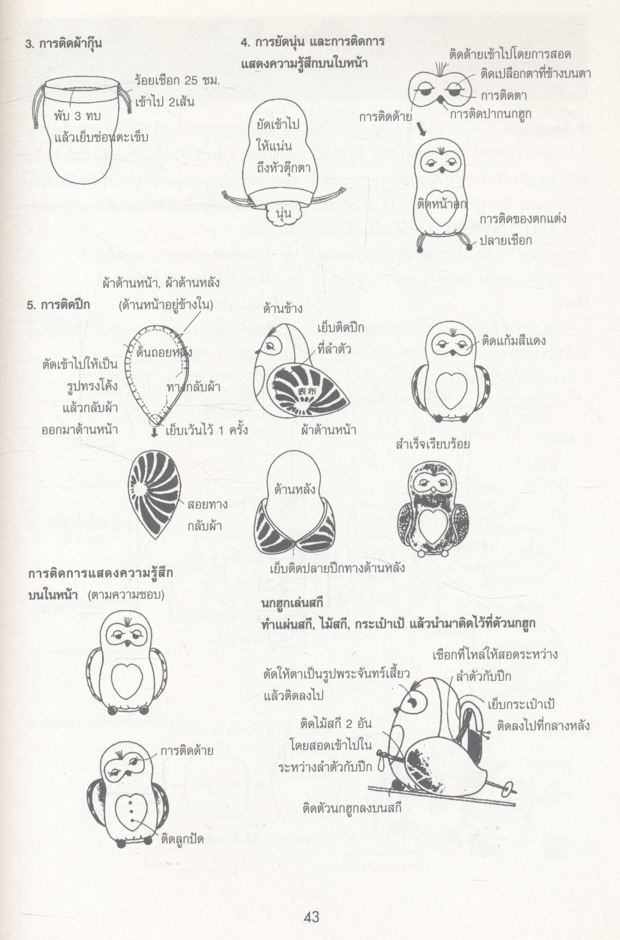 3. การติดผ้ากุ๊น
ร้อยเชือก 25 ซม.
เข้าไป 2เส้น
พับ 3 ทบ
แล้วเย็บซ่อนตะเข็บ
4. การยัดนุ่น และการติดการ
แสดงความรู้สึกบนใบหน้า
ยัดเข้าไป
ให้แน่น
ถึงหัวตุ๊กตา
นุ่น
ติดด้ายเข้าไปโดยการสอด
ติดเปลือกตาที่ข้างบนตา
การติดตา
การติดปากนกฮูก
การติดด้าย
ติดหน้าอก
การติดของตกแต่ง
ปลายเชือก
5. การติดปีก
ผ้าด้านหน้า, ผ้าด้านหลัง
(ด้านหน้าอยู่ข้างใน)
ด้นถอยหลัง
ตัดเข้าไปให้เป็น
รูปทรงโค้ง
แล้วกลับผ้า
ออกมาด้านหน้า
ทางกลับผ้า
เย็บเว้นไว้ 1 ครั้ง
สอยทาง
กลับผ้า
ด้านข้าง
เย็บติดปีก
ที่ลำตัว
表布
ผ้าด้านหน้า
ติดแก้มสีแดง
ด้านหลัง
เย็บติดปลายปีกทางด้านหลัง
สำเร็จเรียบร้อย
การติดการแสดงความรู้สึก
บนในหน้า (ตามความชอบ)
การติดด้าย
ติดลูกปัด
นกฮูกเล่นสกี
ทำแผ่นสกี, ไม้สกี, กระเป๋าเป้ แล้วนำมาติดไว้ที่ตัวนกฮูก
ตัดให้ตาเป็นรูปพระจันทร์เสี้ยว
แล้วติดลงไป
เชือกที่ไหล่ให้สอดระหว่าง
ลำตัวกับปีก
เย็บกระเป๋าเป้
ติดลงไปที่กลางหลัง
ติดไม้สกี 2 อัน
โดยสอดเข้าไปใน
ระหว่างลำตัวกับปีก
ติดตัวนกฮูกลงบนสกี
43